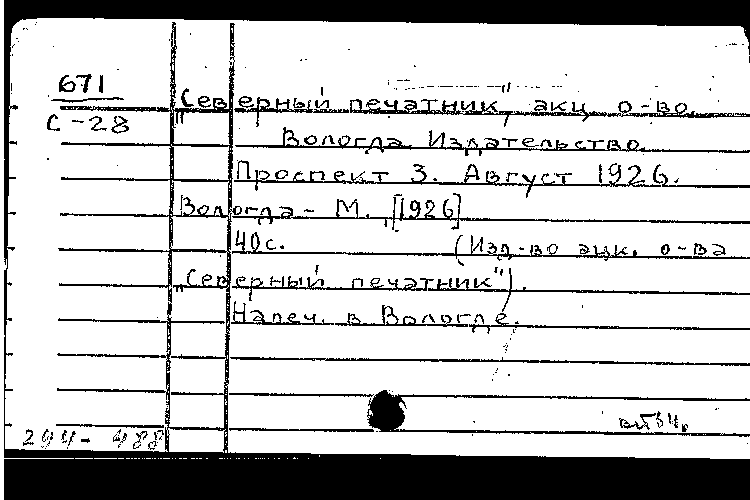 671
С-28
„Северный печатник", акц. о-во.
Вологда. Издательство.
Проспект 3. Август 1926.
Вологда - М., [1926]
40с. (Изд-во ацк. о-ва
„Северный печатник").
Напеч. в Вологде.
294- 488